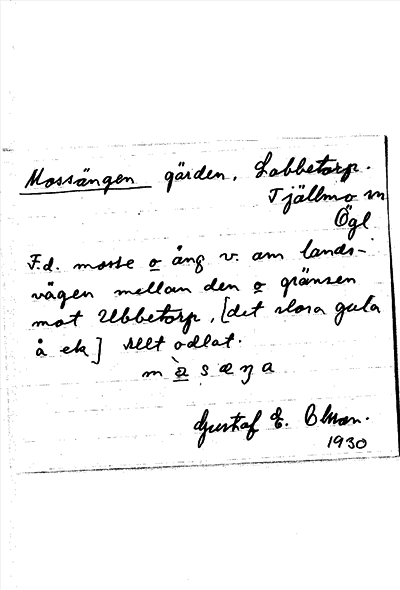 Mossängen gärden, Labbetorp.
Tjällmo sn
Ögl
F.d. mosse o äng v. om lands-
vägen mellan den o gränsen
mot Ubbetorp, [det stora gula
å ek] Allt odlat.
Gustaf E. Olson.
1930